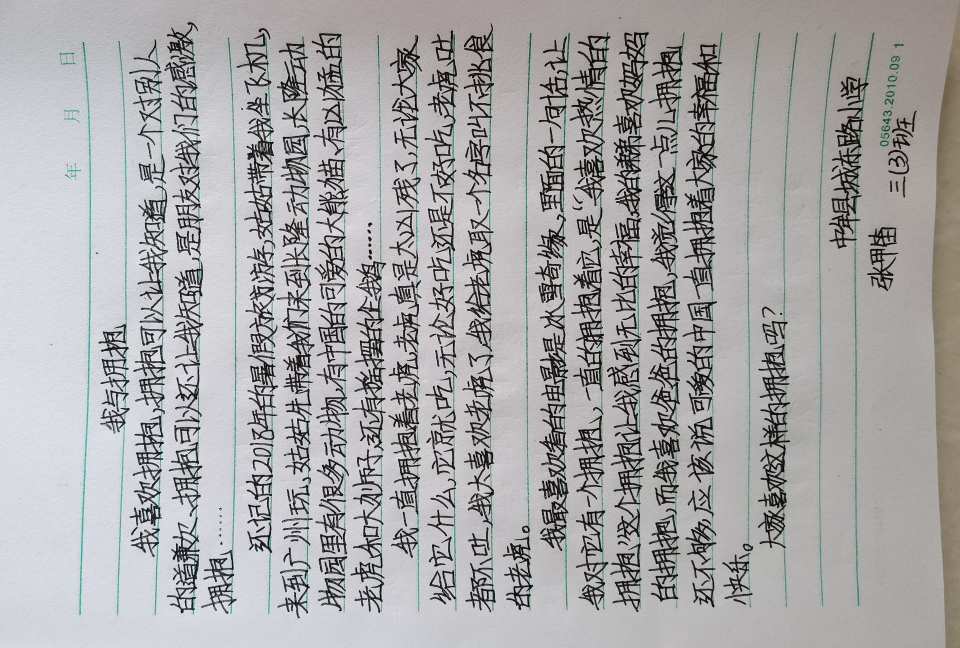 年 月 日
我与拥抱
我喜欢拥抱,拥抱可以让我知道,是一个对别人
的道兼欠、拥抱可以还让我知道,是朋友对我们的感激,
拥抱……
还记的2018年的暑假旅游,姑姑带着我坐飞机,
来到广州玩,姑姑先带着我们来到长隆动物园,长隆动
物园里有很多动物,有中国的可爱的大熊猫,有凶猛的
老虎和大狮子,还有摇摆的企鹅……
我一直拥抱着老虎,老虎真是太凶残了,无论大家
给它什么,它就吃,无论好吃还是不好吃,老虎吐
都不吐,我大喜欢老虎了,我给老虎取一个名字叫不挑食
的老虎。
我最喜欢看的电影是冰雪奇缘,里面的一句话,让
我对它有一个拥抱,一直的拥抱着它,是“我喜欢热情的
拥抱”这个拥抱让我感到无比的幸福,我喜欢妈妈
的拥抱,而我喜欢爸爸的拥抱,我觉得一点儿拥抱
还不够,应该说可爱的中国一直拥抱着大家的幸福和
快乐。
大家喜欢这样的拥抱吗?
中牟县城东路小学
张苗
三(3)班
05643.2010.09 1